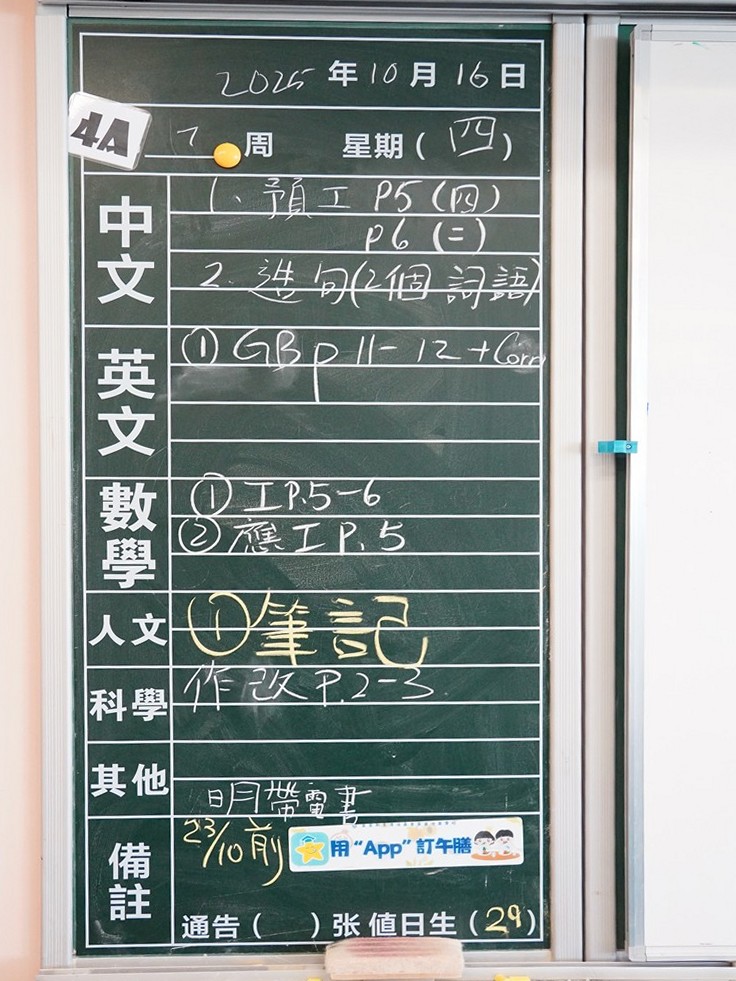 2025 年 10 月 16 日
4A
7 周 星期( 四 )
中文
1、預工 P5 (四)
P6 (二)
2. 造句(2個詞語)
英文
① GB p 11-12 + Corr
數學
① 工P.5-6
② 應工P.5
人文
① 筆記
科學
作改 P.2-3
其他
明帶電書
備註
23/10前
用“App”訂午膳
通告( )张 值日生(29)